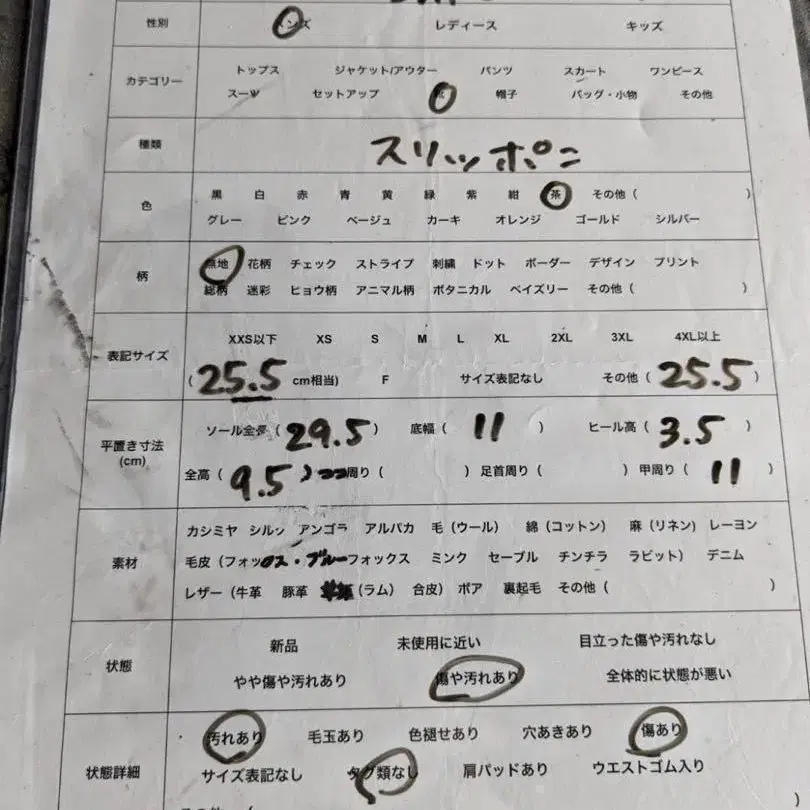 性別 メンズ レディース キッズ
カテゴリー トップス ジャケット/アウター パンツ スカート ワンピース
スーツ セットアップ 靴 帽子 バッグ・小物 その他
種類 スリッポン
色 黒 白 赤 青 黄 緑 紫 紺 茶 その他 ( )
グレー ピンク ベージュ カーキ オレンジ ゴールド シルバー
柄 無地 花柄 チェック ストライプ 刺繍 ドット ボーダー デザイン プリント
総柄 迷彩 ヒョウ柄 アニマル柄 ボタニカル ペイズリー その他 ( )
表記サイズ XXS以下 XS S M L XL 2XL 3XL 4XL以上
( 25.5 cm相当) F サイズ表記なし その他 ( 25.5 )
平置き寸法 (cm) ソール全長 ( 29.5 ) 底幅 ( 11 ) ヒール高 ( 3.5 )
全高 ( 9.5 ) 周り ( ) 足首周り ( ) 甲周り ( 11 )
素材 カシミヤ シルク アンゴラ アルパカ 毛 (ウール) 綿 (コットン) 麻 (リネン) レーヨン
毛皮 (フォックス・ブルーフォックス ミンク セーブル チンチラ ラビット) デニム
レザー (牛革 豚革 (ラム) 合皮) ボア 裏起毛 その他 ( )
状態 新品 未使用に近い 目立った傷や汚れなし
やや傷や汚れあり 傷や汚れあり 全体的に状態が悪い
状態詳細 汚れあり 毛玉あり 色褪せあり 穴あきあり 傷あり
サイズ表記なし タグ類なし 肩パッドあり ウエストゴム入り